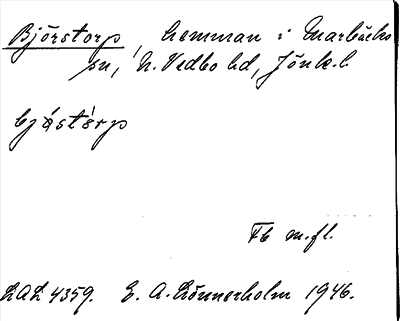 Björstorp, hemman i Marbäcks
sn, N. Vedbo hd, Jönk. l.
bjɷ́stårp
Fb m.fl.
LAL 4359. E. A. Lönnerholm 1946.